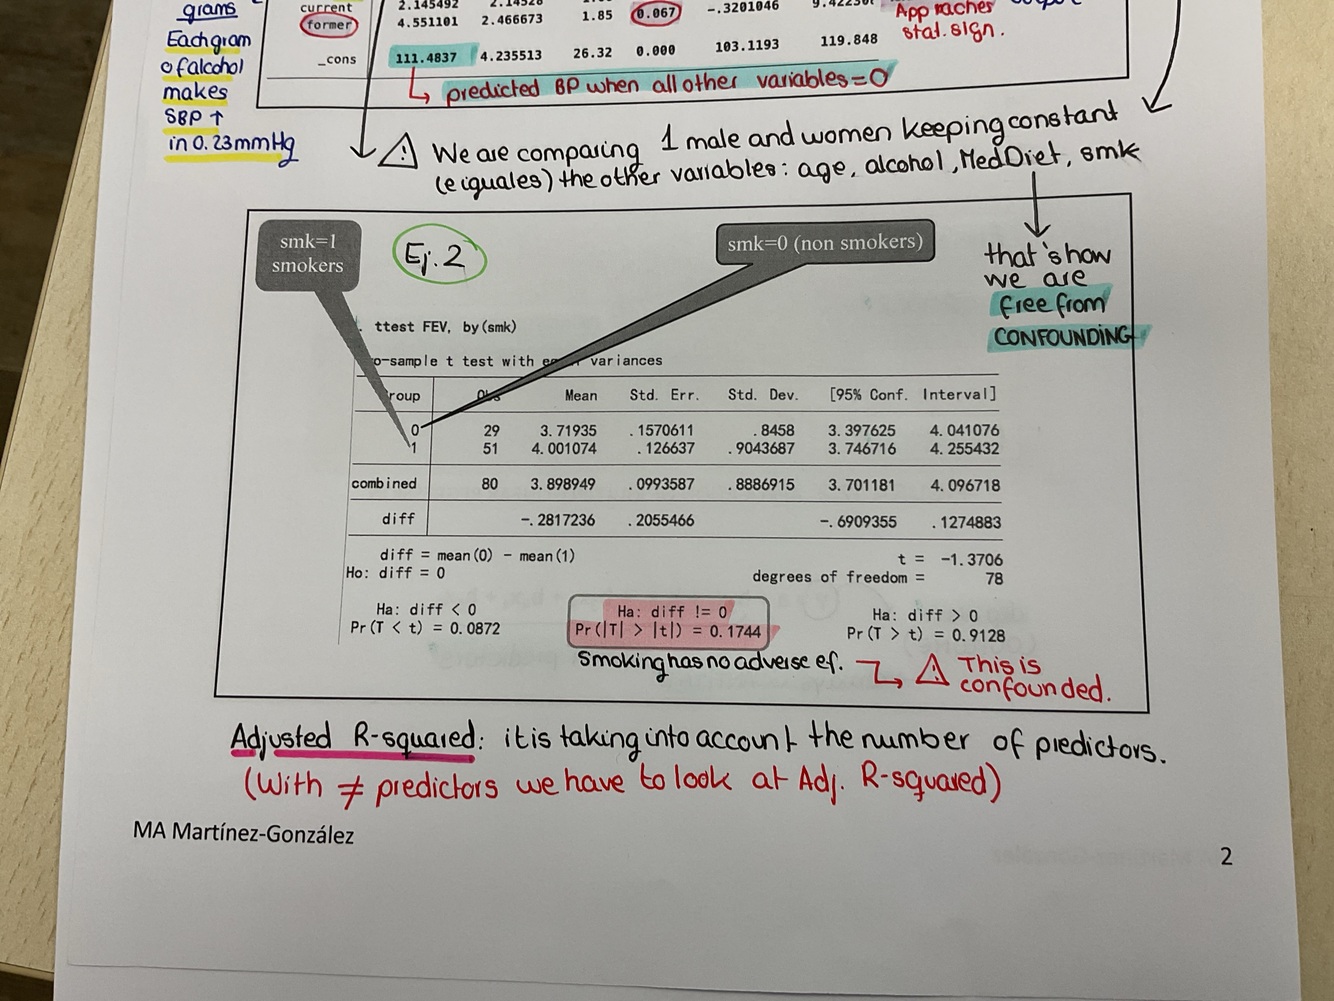 grams
Each gram
of alcohol
makes
SBP ↑
in 0.23mmHg
current 2.145492
former 4.551101 2.466673 1.85 0.067 -.3201046
Approaches
stat. sign.
_cons 111.4837 4.235513 26.32 0.000 103.1193 119.848
↳ predicted BP when all other variables=0
⚠ We are comparing 1 male and women keeping constant
(e iguales) the other variables: age, alcohol, MedDiet, smk
that's how
we are
free from
CONFOUNDING
smk=1
smokers
Ej. 2
smk=0 (non smokers)
. ttest FEV, by(smk)
o-sample t test with variances
roup Mean Std. Err. Std. Dev. [95% Conf. Interval]
0 29 3.71935 .1570611 .8458 3.397625 4.041076
1 51 4.001074 .126637 .9043687 3.746716 4.255432
combined 80 3.898949 .0993587 .8886915 3.701181 4.096718
diff -.2817236 .2055466 -.6909355 .1274883
diff = mean(0) - mean(1) t = -1.3706
Ho: diff = 0 degrees of freedom = 78
Ha: diff < 0 Ha: diff != 0 Ha: diff > 0
Pr(T < t) = 0.0872 Pr(|T| > |t|) = 0.1744 Pr(T > t) = 0.9128
Smoking has no adverse ef. ↳ ⚠ This is
confounded.
Adjusted R-squared: it is taking into account the number of predictors.
(With ≠ predictors we have to look at Adj. R-squared)
MA Martínez-González
2